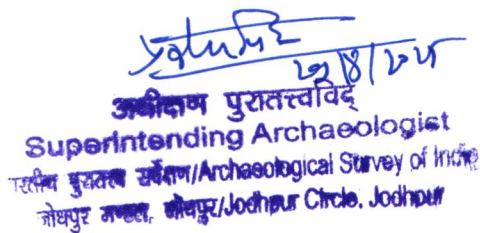 अधीक्षण पुरातत्त्वविद्
Superintending Archaeologist
भारतीय पुरातत्व सर्वेक्षण/Archaeological Survey of India
जोधपुर मण्डल, जोधपुर/Jodhpur Circle, Jodhpur